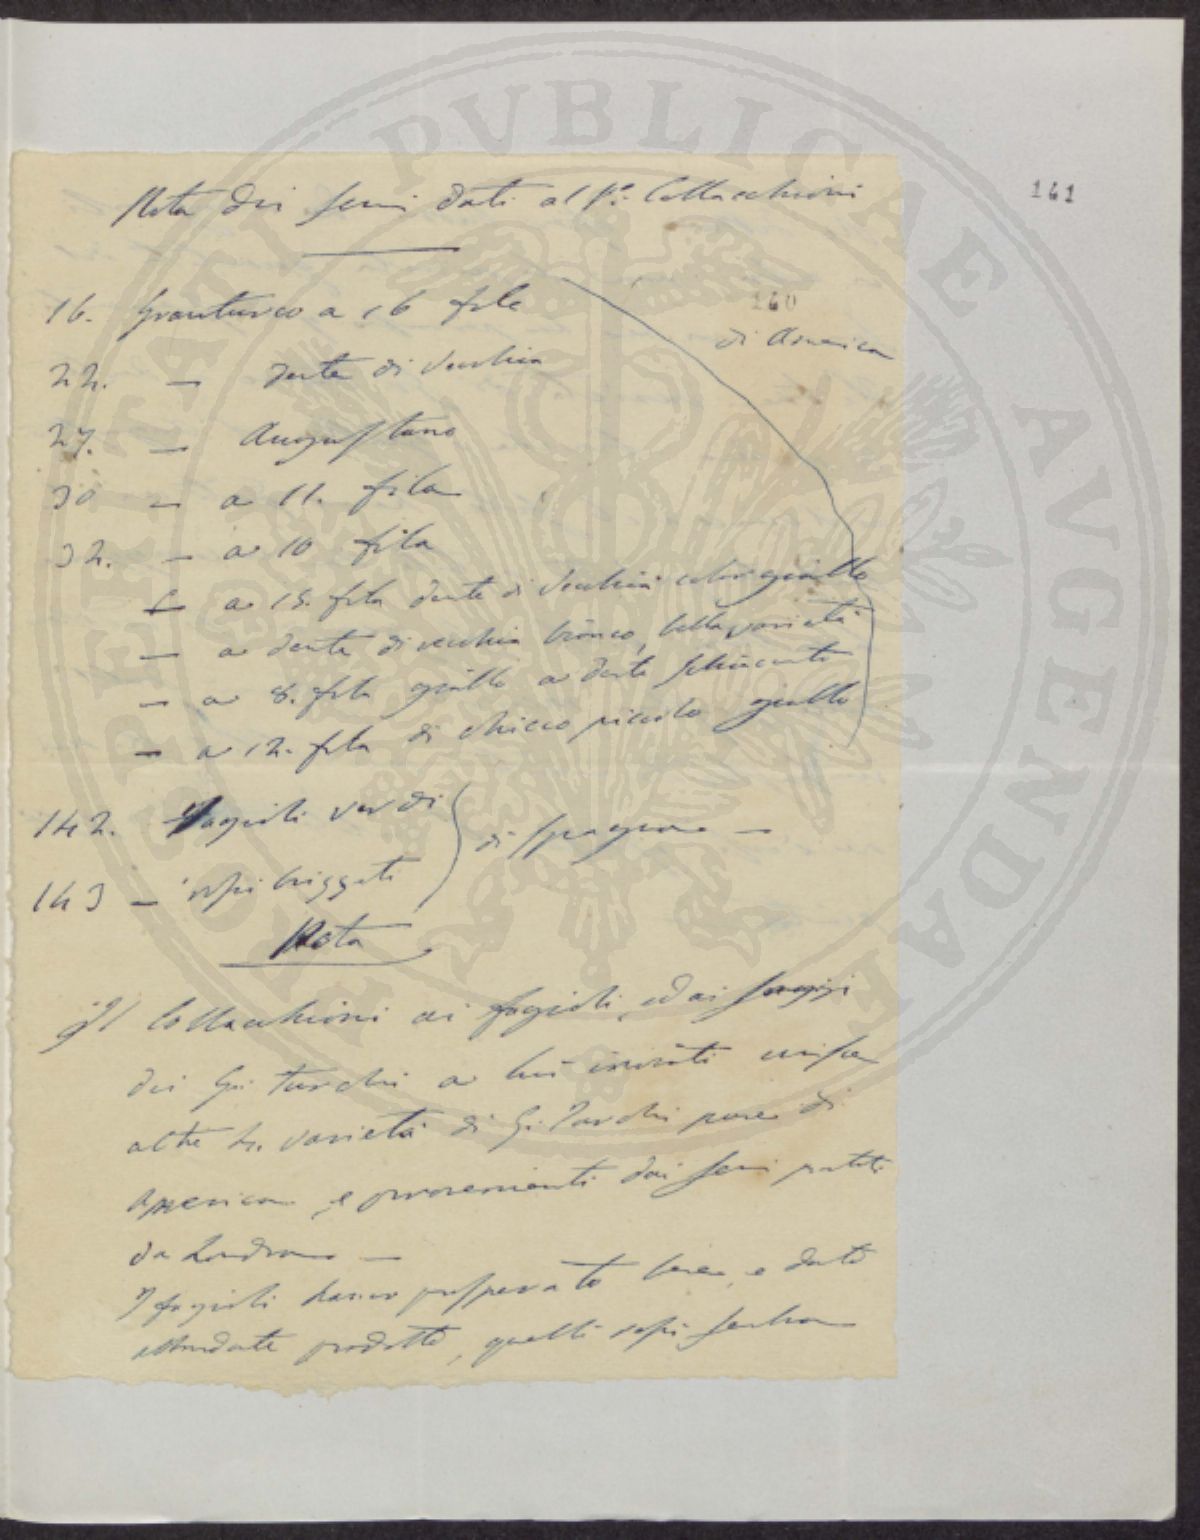 141
Nota dei semi dati al Sr. Collacchioni
160
16. Granturco a 16 file
di America
22. — dente di Vecchia
27. — Augustano
30 — a 11. fila
32. — a 10 fila
— a 18. fila dente di Vecchia color giallo
— a dente di vecchia bianco, bella varietà
— a 8. fila giallo a dente schiacciato
— a 12. fila di chicco piccolo giallo
142. Fagioli verdi
di Spagna —
143 — rossi brizzati
Nota
Il Collacchioni ai fagioli, ed ai saggi
dei Gi Turchi a lui inviati unisce
altre 4. varietà di Gi Turchi pure di
America, e provenienti dai semi portati
da Londra —
I fagioli hanno prosperato bene, e dato
abbondante prodotto, quelli rossi
HOSPITALITATI PVBLICAE AVGENDAE